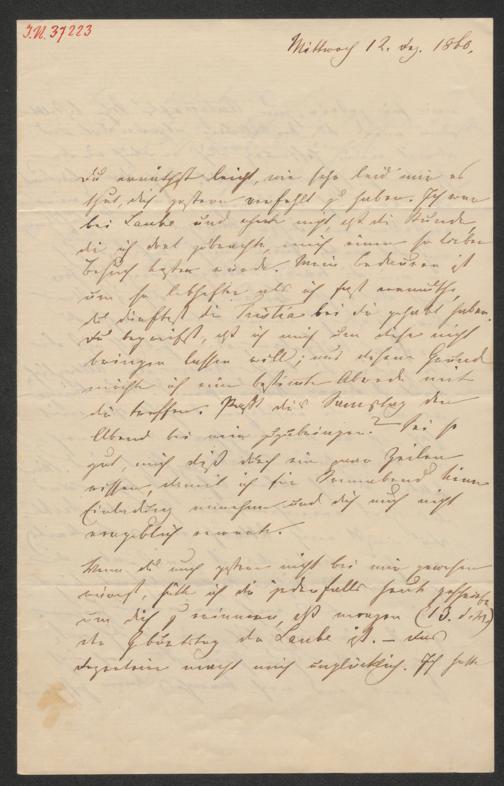 J.N. 37223
Mittwoch 12. Dez. 1860.
Du erräthst leicht, wie sehr leid mir es
thut, dich gestern verfehlt zu haben. Ich war
bei Laube und ahnte nicht, daß die Stunde
die ich dort zubrachte, mich einen so lieben
Besuch kosten würde. Mein Bedauern ist
um so lebhafter als ich fast vermuthe,
du dürftest die bei dir gehabt haben.
Du begreifst, daß ich mich um diese nicht
bringen lassen will; aus diesem Grund
möchte ich eine bestimmte Abrede mit
dir treffen. Paßt dirs Samstag den
Abend bei mir zuzubringen? Sei so
gut, mich dieß durch ein paar Zeilen
wissen, damit ich für Sonnabend keine
Einladung annehme und dich auch nicht
vergeblich erwarte.
Wenn du auch gestern nicht bei mir gewesen
wärest, hätte ich dir jedenfalls heute geschrieben
um dich zu erinnern, daß morgen (13. d. M.)
der Geburtstag der Laube ist. – Das
macht mich unglücklich. Ich hatte